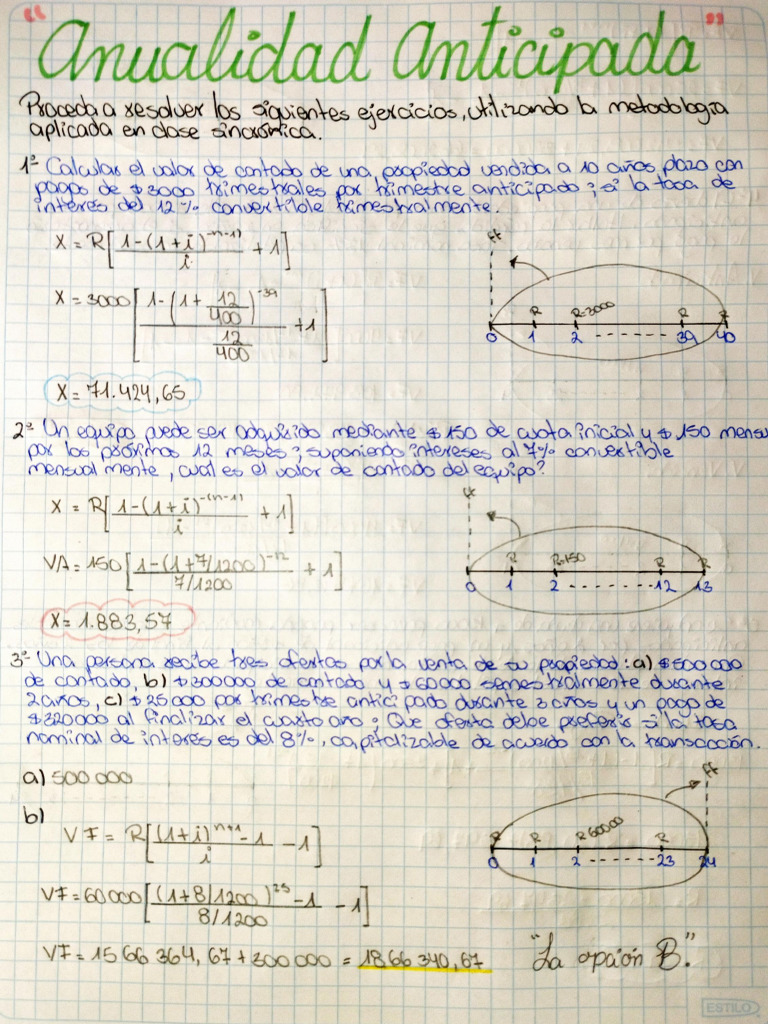 "Anualidad Anticipada"
Proceda a resolver los siguientes ejercicios, utilizando la metodología
aplicada en clase sincrónica.
1ª Calcular el valor de contado de una propiedad vendida a 10 años plazo con
pagos de $3000 trimestrales por trimestre anticipado; si la tasa de
interés del 12% convertible trimestralmente.
X = R[1-(1+i)^-n-1)/i + 1]
X = 3000[1-(1+12/400)^-39/12/400 + 1]
ff
R R=3000 R R
0 1 2 ------- 39 40
X = 71.424,65
2ª Un equipo puede ser adquirido mediante $150 de cuota inicial y $150 mensu
por los próximos 12 meses; suponiendo intereses al 7% convertible
mensualmente, cual es el valor de contado del equipo?
X = R[1-(1+i)^-(n-1)/i + 1]
VA = 150[1-(1+7/1200)^-12/7/1200 + 1]
ff
R R=150 R R
0 1 2 ------- 12 13
X = 1.883,57
3ª Una persona recibe tres ofertas por la venta de su propiedad: a) $500000
de contado, b) $300000 de contado y $60000 semestralmente durante
2 años, c) $25000 por trimestre anticipado durante 3 años y un pago de
$320000 al finalizar el cuarto año; Que oferta debe preferir si la tasa
nominal de interés es del 8%, capitalizable de acuerdo con la transacción.
a) 500 000
b)
VF = R[(1+i)^n+1 - 1/i - 1]
ff
R R R 60000 R
0 1 2 ------- 23 24
VF = 60000[(1+8/1200)^25 - 1/8/1200 - 1]
VF = 1566 364,67 + 300 000 = 1866 340,67
"La opción B."
ESTILO